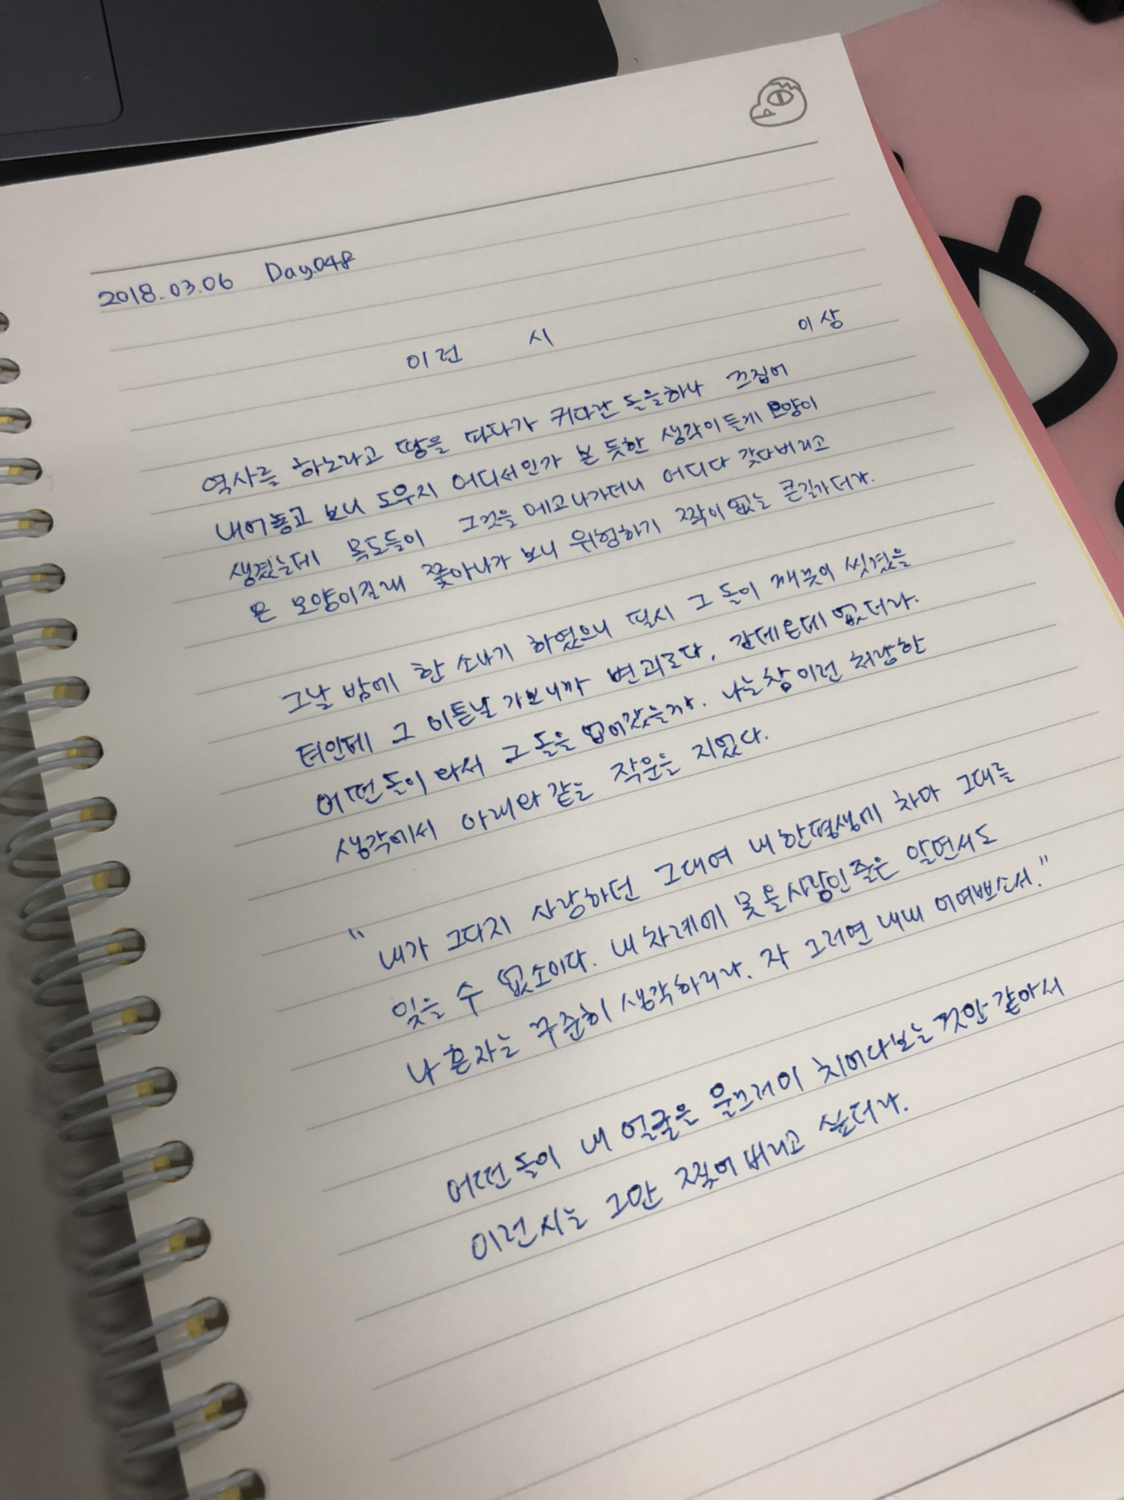 2018.03.06 Day048
이런 시
이상
역사를 하노라고 땅을 파다가 커다란 돌을하나 끄집어
내어놓고 보니 도무지 어디서인가 본 듯한 생각이 들게 모양이
생겼는데 목도들이 그것을 메고나가더니 어디다 갖다버리고
온 모양이길래 쫓아나가 보니 위험하기 짝이없는 큰길가더라.
그날 밤에 한 소나기 하였으니 필시 그 돌이 깨끗이 씻겼을
터인데 그 이튿날 가보니까 변괴로다, 간데온데 없더라.
어떤돌이 와서 그 돌을 업어갔을까. 나는참 이런 처량한
생각에서 아래와 같은 작문을 지었다.
"내가 그다지 사랑하던 그대여 내 한평생에 차마 그대를
잊을 수 없소이다. 내차례에 못 올사랑인 줄은 알면서도
나 혼자는 꾸준히 생각하리다. 자 그러면 내내 어여쁘소서."
어떤돌이 내 얼굴을 물끄러미 치어다보는 것만 같아서
이런시는 그만 찢어버리고 싶더라.